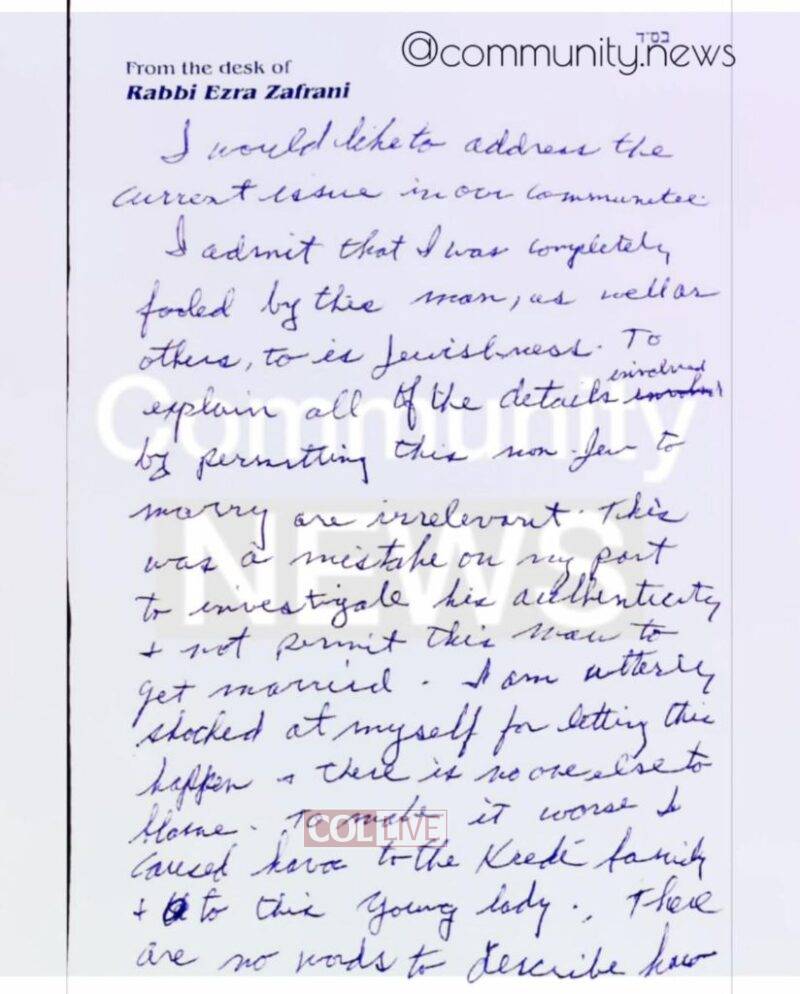 בס"ד
@community.news
From the desk of
Rabbi Ezra Zafrani
I would like to address the
current issue in our communitee.
I admit that I was completely
fooled by this man, as well as
others, to is Jewishness. To
involved
explain all of the details
by permitting this non-Jew to
marry are irrelevant. This
was a mistake on my part
to investigate his authenticity
+ not permit this man to
get married. I am utterly
shocked at myself for letting this
happen + there is no one else to
blame. To make it worse I
caused to the family
+ to this young lady. There
are no words to describe how
Community
NEWS
COL LIVE